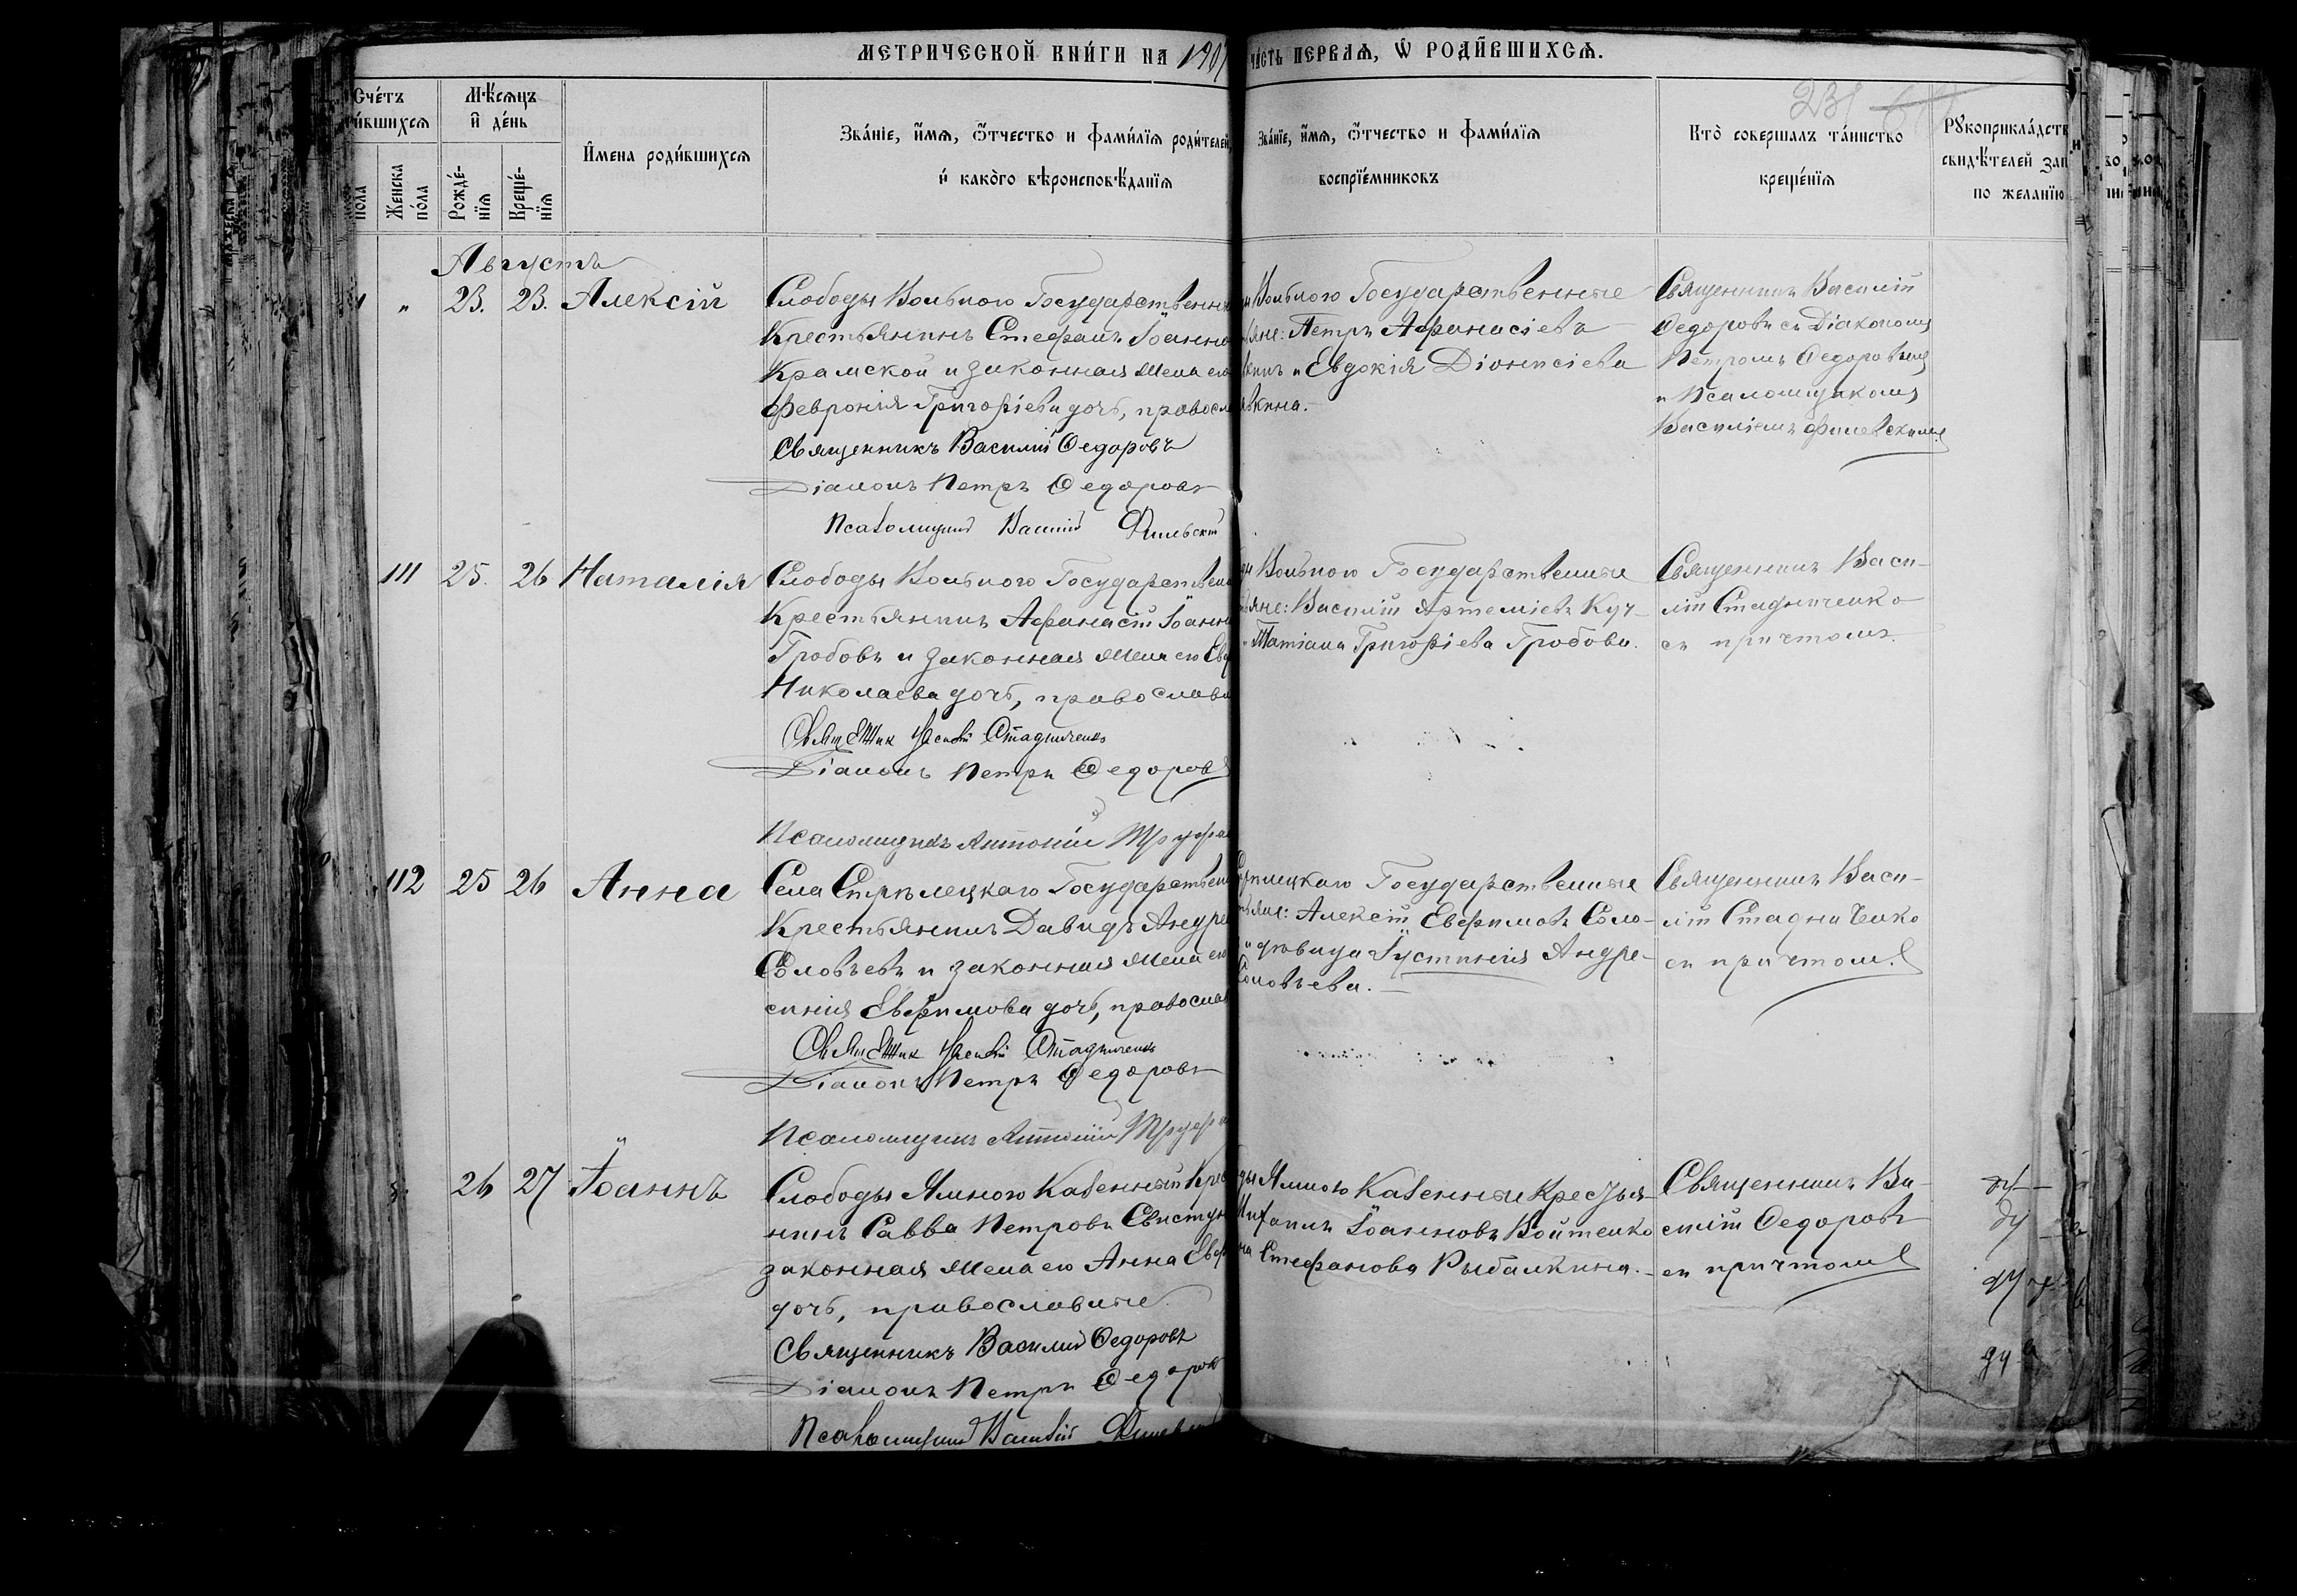 МЕТРИЧЕСКОЙ КНИ́ГИ НА 1907
ЧА́СТЬ ПЕРВАѦ, Ѿ РОДИ́ВШИХСѦ.
231
Сче́тъ
и́вшихсѧ
Мѣ́сѧцъ
и҆ де́нь
И҆мена роди́вшихсѧ
Зва́нїе, и҆́мѧ, ѻ҆́тчество и фами́лїѧ роди́телей,
и҆ како́гѡ вѣроисповѣ́данїѧ
Зва́нїе, и҆́мѧ, ѻ҆́тчество и фами́лїѧ
воспрїе́мниковъ
Кто̀ совершалъ та́инство
креще́нїѧ
Рꙋкоприкла́дств
свидѣ́телей зап
по желанїю
пола
Женска
по́ла
Рожде́-
нїѧ
Креще́-
нїѧ
Августъ
" 23. 23. Алексій
Слободы Вольного Государственн
Крестьянинъ Стефанъ Іоанно
Крамской и законная жена его
Феврония Григоріева дочь, правосл
Священникъ Василій Ѳедоровъ
Діаконъ Петръ Ѳедоровъ
Псаломщикъ Василій Фильскій
Вольного Государственные
яне: Петръ Афанасіевъ
кинъ и Евдокія Діонисіева
вкина.
Священникъ Василій
Ѳедоровъ съ Діакономъ
Петромъ Ѳедоровымъ
и Псаломщикомъ
Василіемъ Филевскимъ
111 25. 26 Наталія
Слободы Вольного Государствен
Крестьянинъ Афанасій Іоанн
Гробовъ и законная жена его Ев
Николаева дочь, православн
Священник Василій Стадниченко
Діаконъ Петръ Ѳедоровъ
Псаломщикъ Антоній Труфа
Вольного Государственные
яне: Василій Артеміевъ Куч-
Татіана Григоріева Гробова.
Священникъ Васи-
лій Стадниченко
съ причтомъ.
112 25 26 Анна
Села Стрѣлецкаго Государствен
Крестьянинъ Давидъ Андре
Соловьевъ и законная жена его
синія Евфимова дочь, правосла
Священник Василій Стадниченко
Діаконъ Петръ Ѳедоровъ
Псаломщикъ Антоній Труфа
Стрѣлецкаго Государственные
яне: Алексій Евфимовъ Соло-
и дѣвица Іустинія Андре-
Соловьева.
Священникъ Васи-
лій Стадниченко
съ причтомъ
26 27 Іоаннъ
Слободы Ямного Казенный Кре
нинъ Савва Петровъ Свистун
законная жена его Анна Евф
дочь, православные.
Священникъ Василій Ѳедоровъ
Діаконъ Петръ Ѳедоровъ
Псаломщикъ Василій
ды Ямного Казенные Крестья-
Михаилъ Іоанновъ Войтенко
на Стефанова Рыбалкина.
Священникъ Ва-
силій Ѳедоровъ
съ причтомъ